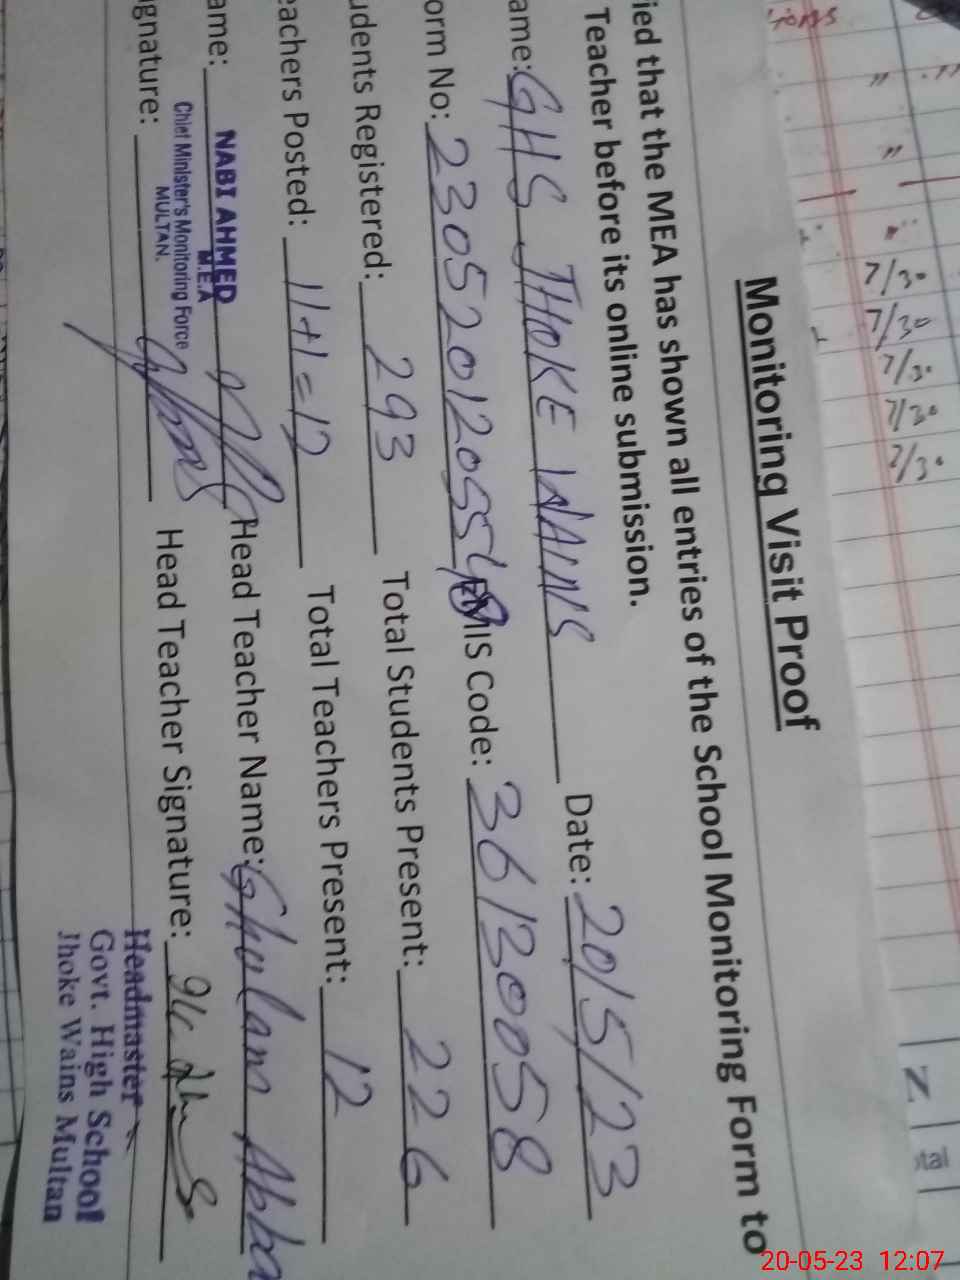 Monitoring Visit Proof
ied that the MEA has shown all entries of the School Monitoring Form to
Teacher before its online submission.
ame: GHS JHOKE WAINS Date: 20/5/23
orm No: EMIS Code: 36130058
udents Registered: 293 Total Students Present: 226
eachers Posted: 11+1=12 Total Teachers Present: 12
ame: NABI AHMED Head Teacher Name: Ghulam Abba
M.E.A
Chief Minister's Monitoring Force
MULTAN.
ignature: Head Teacher Signature:
Headmaster
Govt. High School
Jhoke Wains Multan
7/30
7/30
7/30
7/30
N
20-05-23 12:07